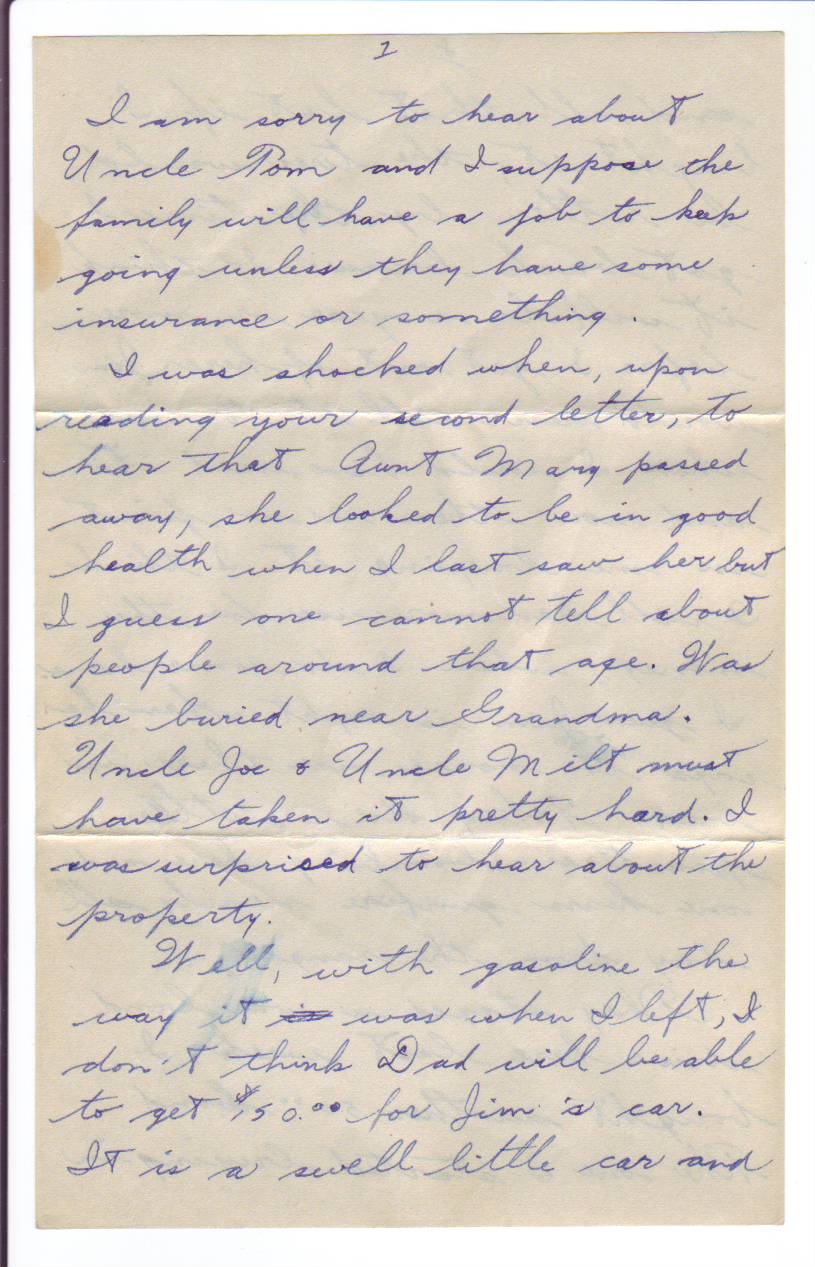 7
I am sorry to hear about
Uncle Tom and I suppose the
family will have a job to keep
going unless they have some
insurance or something.
I was shocked when, upon
reading your second letter, to
hear that Aunt Mary passed
away, she looked to be in good
health when I last saw her but
I guess one cannot tell about
people around that age. Was
she buried near Grandma.
Uncle Joe & Uncle Milt must
have taken it pretty hard. I
was surprised to hear about the
property.
Well, with gasoline the
way it is was when I left, I
don't think Dad will be able
to get $150.00 for Jim's car.
It is a swell little car and